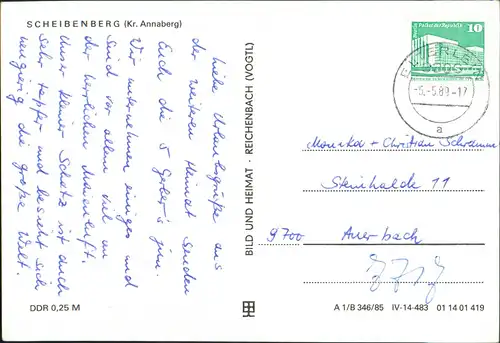 SCHEIBENBERG (Kr. Annaberg)
Liebe Urlaubsgrüße aus
der weiteren Heimat senden
Euch die 5 Gerber's jun.
Wir unternehmen einiges und
sind vor allem viel an
der herrlichen Maienluft.
Unser kleiner Schatz ist auch
sehr tapfer und besieht sich
neugierig die große Welt.
DDR 0,25 M
BILD UND HEIMAT · REICHENBACH (VOGTL)
10
-5.-5.89-17
a
Monika + Christian Schramm
Steinhalde 11
9700 Auerbach
A 1/B 346/85 IV-14-483 01 14 01 419